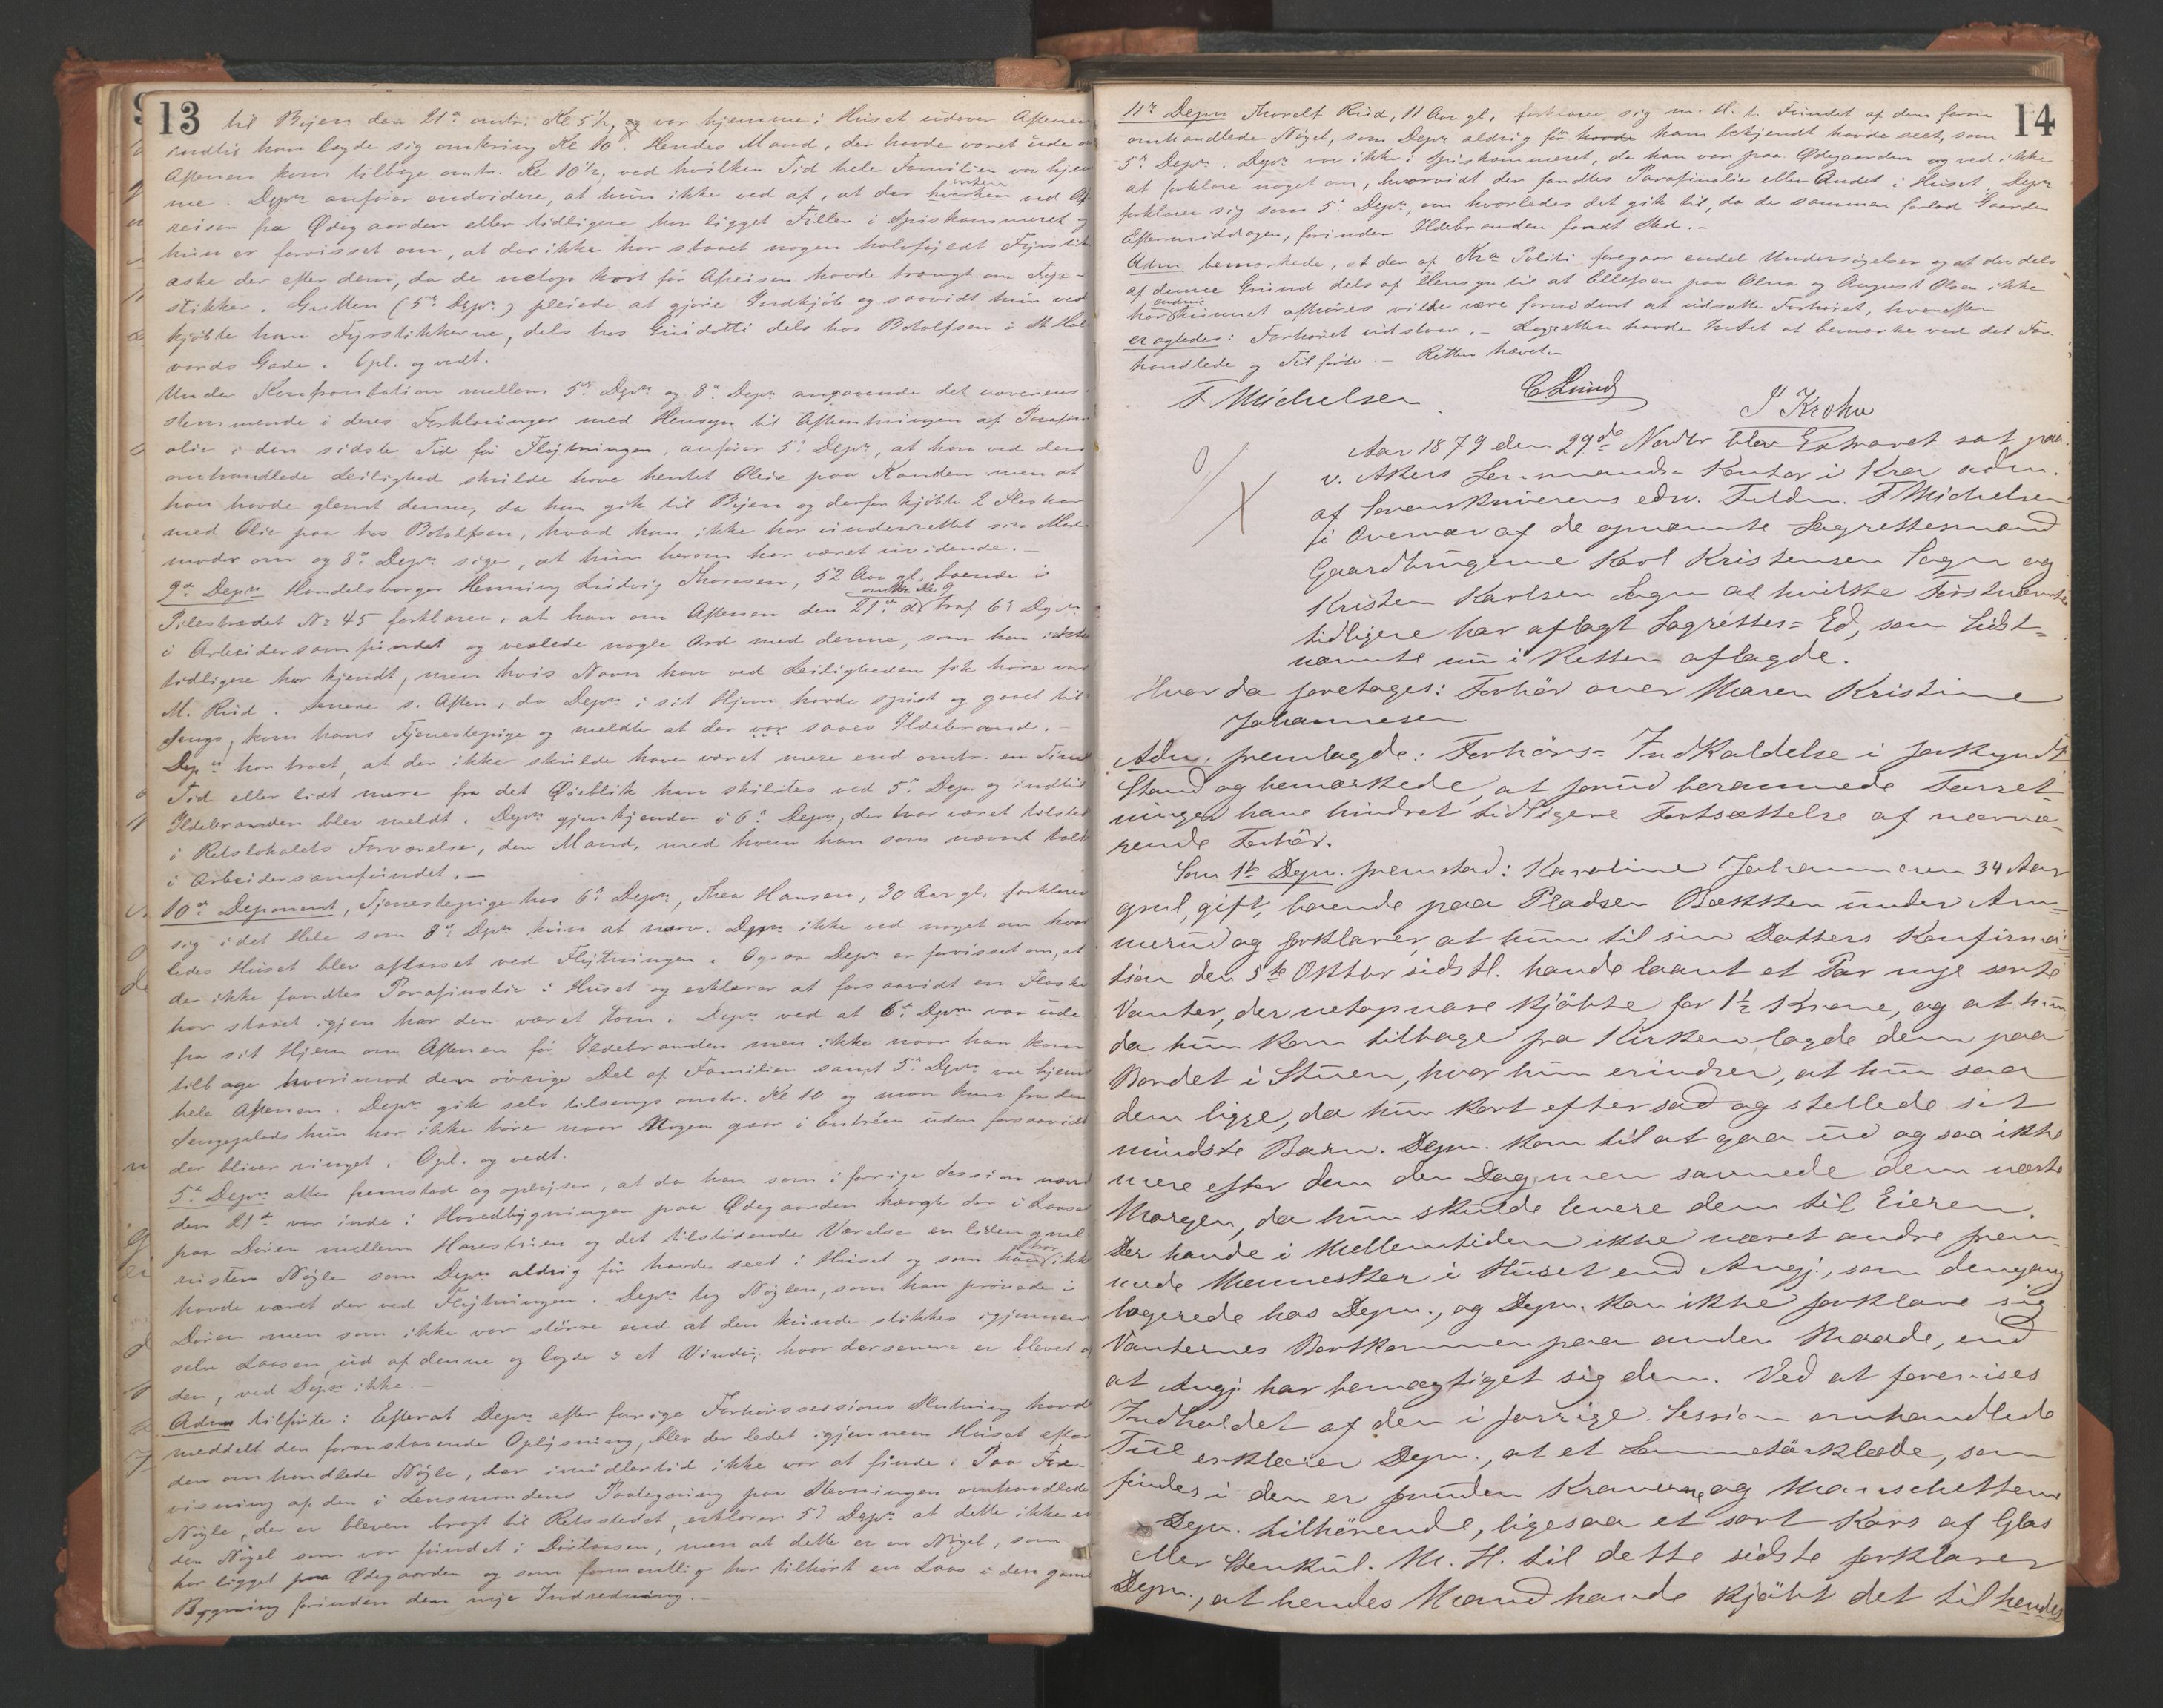 13
til Byen den 21de omtr. Kl 5½, og var hjemme i Huset udover Aftenen
indtil han lagde sig omkring Kl 10. Hendes Mand, der havde været ude om
Aftenen kom tilbage omtr. Kl 10½, ved hvilken Tid hele Familien var hjem
me. Depn anfører endvidere, at hun ikke ved af, at der hverken ved Af
reisen fra Ødegaarden eller tidligere har ligget Filler i Spiskammeret og
hun er forvisset om, at der ikke har staaet nogen halvfyldt Fyrstik
æske der efter dem, da de netop kort før Afreisen havde trængt om Fyr-
stikker. Gutten (5te Depn) pleiede at gjøre Indkjøb og saavidt hun ved
kjøbte han Fyrstikkerne, dels hos Guidotti dels hos Botolfsen i St Hal
vards Gade. Opl. og vedt.
Under Konfrontation mellem 5te Depn og 8de Depn angaaende det uoverens
stemmende i deres Forklaringer med Hensyn til Afhentningen af Parafin
olie i den sidste Tid før Flytningen, anfører 5te Depn, at han ved den
omhandlede Leilighed skulde have hentet Olie paa Kanden men at
han havde glemt denne, da han gik til Byen og derfor kjøbte 2 Flasker
med Olie paa hos Botolfsen, hvad han ikke har underrettet sin Mad
moder om og 8de Depn siger, at hun herom har været uvidende.—
9de Depn Handelsborger Henning Ludvig Thoresen, 52 Aar gl. boende i
omtr. Kl 9
Pilestrædet No 45 forklarer, at han om Aftenen den 21de ds traf 6te Depn
i Arbeidersamfundet og vexlede nogle Ord med denne, som han ikke
tidligere har kjendt, men hvis Navn han ved Leiligheden fik høre var
M. Rud. Senere s. Aften, da Depn i sit Hjem havde spist og gaaet til
sengs, kom hans Tjenestepige og meldte at der var saaes Ildebrand.—
Depn har troet, at der ikke skulde have været mere end omtr. en Times
Tid eller lidt mere fra det Øieblik han skiltes ved 5te Depn og indtil
Ildebranden blev meldt. Depn gjenkjender i 6te Depn, der har været tilsted
i Retslokalets Forværelse, den Mand, med hvem han som nævnt talte
i Arbeidersamfundet.—
10de Deponent, Tjenestepige hos 6te Depn, Thea Hansen, 30 Aar gl, forklarer
sig i det Hele som 8de Depn kun at nærv. Depn ikke ved noget om hvor
ledes Huset blev aflaaset ved Flytningen. Ogsaa Depn er forvisset om, at
der ikke fandtes Parafinolie i Huset og erklærer at forsaavidt en Flaske
har staaet igjen har den været tom. Depn ved at 6te Depn var ude
fra sit Hjem om Aftenen før Ildebranden men ikke naar han kom
tilbage hvorimod den øvrige Del af Familien samt 5te Depn var hjemme
hele Aftenen. Depn gik selv tilsengs omtr. Kl 10 og man kan fra den
Sengeplads hun har ikke høre naar Nogen gaar i Entréen uden forsaavidt
der bliver ringet. Opl. og vedt.
5te Depn atter fremstod og oplyser, at da han som i forrige Session nævnt
den 21de var inde i Hovedbygningen paa Ødegaarden hængte der i Laasen
paa Døren mellem Havestuen og det tilstødende Værelse en liden gml
rusten Nøgle som Depn aldrig før havde seet i Huset og som han tror ikke
havde været der ved Flytningen. Depn tog Nøglen, som han prøvede i
Døren men som ikke var større end at den kunde stikkes igjennem
selve Laasen, ud af denne og lagde i et Vindu; hvor dersenere er blevet af
den, ved Depn ikke.—
Adm tilførte: Efterat Depn efter forrige Forhørssessions Slutning havde
meddelt den foranstaaende Oplysning, blev der ledet igjennem Huset efter
den omhandlede Nøgle, der imidlertid ikke var at finde. Paa Fore-
visning af den i Lensmandens Paategning paa Stevningen omhandlede
Nøgle, der er bleven bragt til Retsstedet, erklærer 5te Depn at dette ikke er
den Nøgel som var fundet i Dørlaasen, men at dette er en Nøgel, som
har ligget paa Ødegaarden og som formentlig har tilhørt en Laas i den gamle
Bygning forinden dens nye Indredning.—
14
11te Depn Thorolf Rud, 11 Aar gl, forklarer sig m. H. t. Fundet af den foran
omhandlede Nøgel, som Depn aldrig før havde ham bekjendt havde seet, som
5te Depn. Depn var ikke i Spiskammeret, da han var paa Ødegaarden og ved ikke
at forklare noget om, hvorvidt der fandtes Parafinolie eller Andet i Huset. Depn
forklarer sig som 5te Depn, om hvorledes det gik til, da de sammen forlod Gaarden
Eftermiddagen, forinden Ildebranden fandt Sted.—
Adm bemærkede, at der af Kra Politi foregaar endel Undersøgelser og at der dels
af denne Grund dels af Hensyn til at Ellefsen paa Alna og August Olsen ikke
har kunnet afhøres vilde være fornødent at udsætte Forhøret, hvorefter
eragtedes: Forhøret udstaar.— Lagretten havde Intet at bemærke ved det For-
handlede og Tilførte.— Retten hævet.—
F Michelsen C Lund J Krohn
Aar 1879 den 29de Novbr blev Extraret sat paa
v. Akers Lensmands Kontor i Kra adm.
af Sorenskriverens edsv. Fuldm. F Michelsen
i Overvær af de opnævnte Lagrettesmænd
Gaardbrugerne Karl Kristensen Sogn og
Kristen Karlsen Sogn af hvilke Førstnævnte
tidligere har aflagt Lagrettes-Ed, som Sidst-
nævnte nu i Retten aflagde.
Hvor da foretoges: Forhør over Maren Kristine
Johannesen
Adm. fremlagde: Forhørs-Indkaldelse i forkyndt
Stand og bemærkede, at forud berammede Forret-
ninger have hindret tidligere Fortsættelse af nærvæ-
rende Forhør.
Som 1ste Depn. fremstod: Karoline Johannesen 34 Aar
gml, gift, boende paa Pladsen Bækken under Am-
merud og forklarer, at hun til sin Datters Konfirma-
tion den 5te Oktbr sidstl. havde laant et Par nye sorte
Vanter, der netop vare kjøbte for 1½ Krone, og at hun
da hun kom tilbage fra Kirken lagde dem paa
Bordet i Stuen, hvor hun erindrer, at hun saa
dem ligge, da hun kort efter sad og stellede sit
mindste Barn. Depn. kom til at gaa ud og saa ikke
mere efter dem den Dag, men savnede dem næste
Morgen, da hun skulde levere dem til Eieren.
Der havde i Mellemtiden ikke været andre frem-
mede Mennesker i Huset end Angj., som dengang
logerede hos Depn., og Depn. kan ikke forklare sig
Vanternes Bortkommen paa anden Maade, end
at Angj. har bemægtiget sig dem. Ved at forevises
Indholdet af den i forrige Session omhandlede
Tine erklærer Depn., at et Lommetørklæde, som
findes i den er foruden Kraverne og Manschetterne
Depn. tilhørende, ligesaa et sort Kors af Glas
eller Stenkul. M. H. til dette sidste forklarer
Depn., at hendes Mand havde kjøbt det til hendes